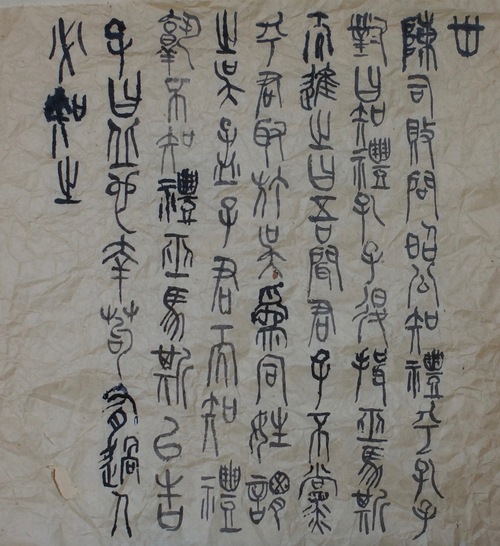 丗
陳司敗問昭公知禮乎孔子
對曰知禮孔子退揖巫馬斯
而進之曰吾聞君子不黨
乎君取於吳為同姓謂
之吳孟子君而知禮
孰不知禮巫馬斯以告
子曰丘也幸苟有過人
必知之